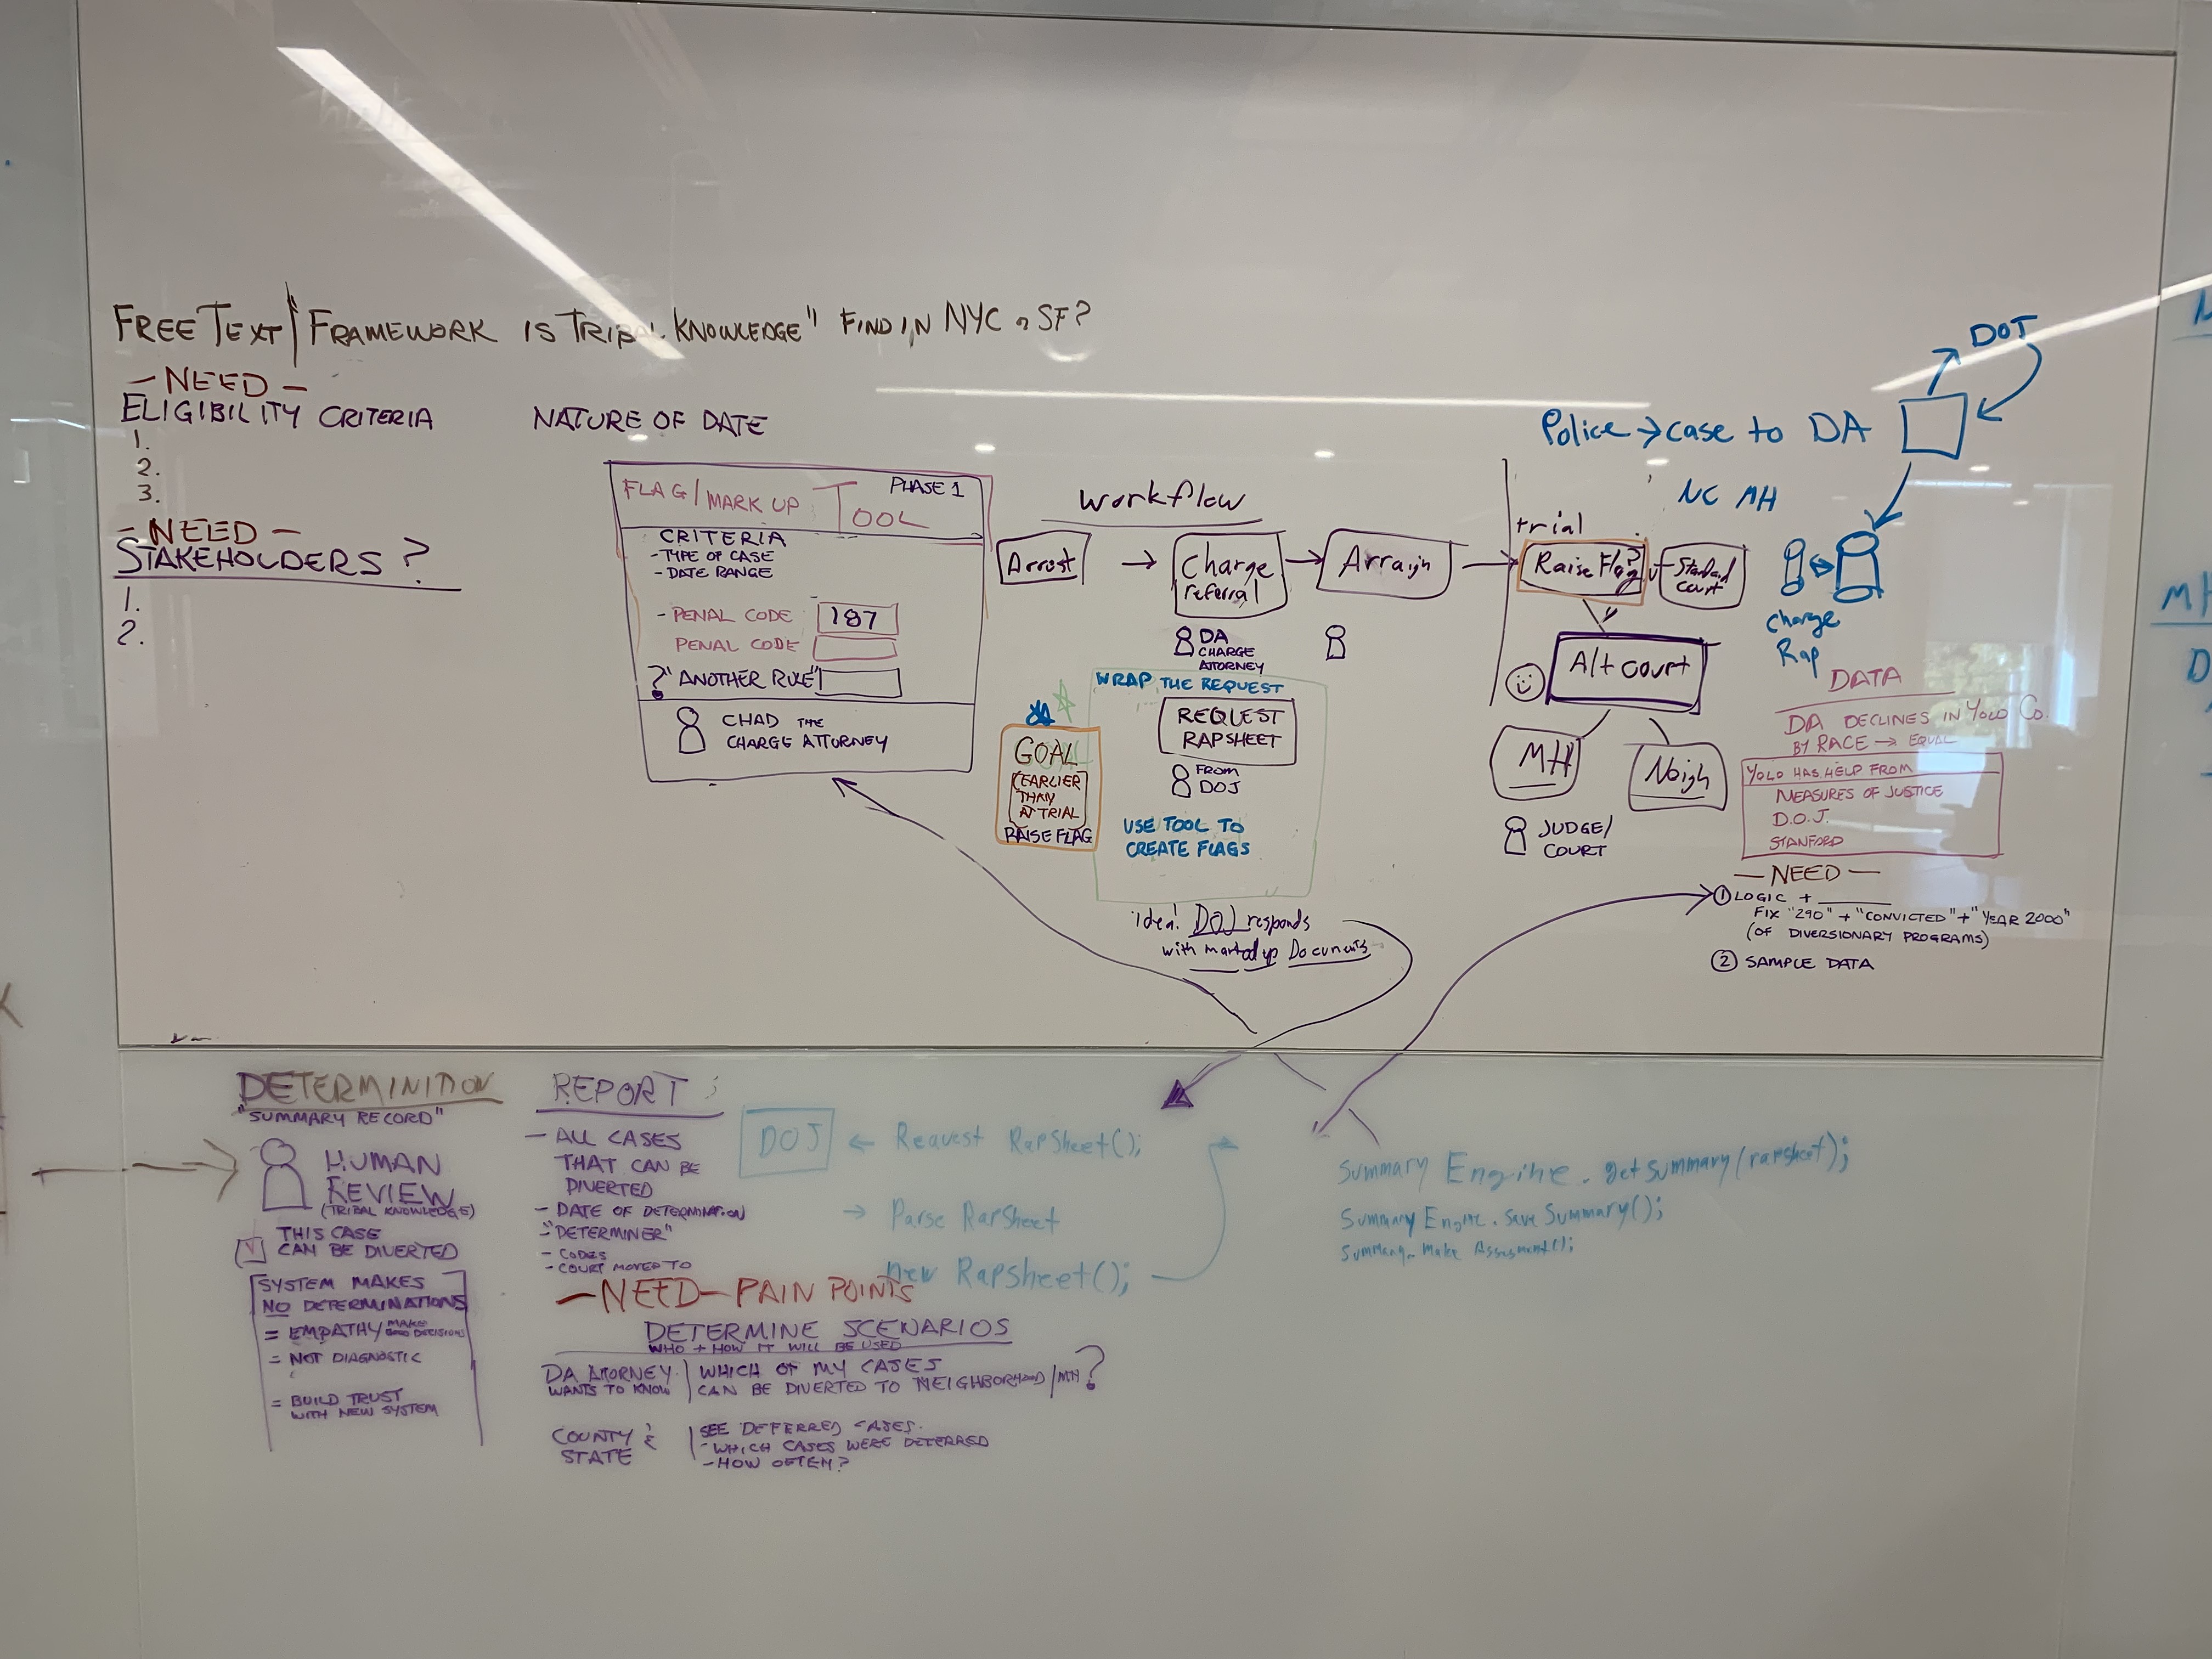 FREE TEXT | FRAMEWORK IS TRIBAL KNOWLEDGE" FIND IN NYC or SF?
- NEED -
ELIGIBILITY CRITERIA
1.
2.
3.
- NEED -
STAKEHOLDERS ?
1.
2.
NATURE OF DATE
PHASE 1
FLAG/MARK UP TOOL
CRITERIA
- TYPE OF CASE
- DATE RANGE
- PENAL CODE 187
PENAL CODE
? "ANOTHER RULE"
CHAD THE
CHARGE ATTORNEY
workflow
Arrest → Charge referral → Arraign →
DA
CHARGE
ATTORNEY
WRAP THE REQUEST
REQUEST
RAPSHEET
FROM
DOJ
USE TOOL TO
CREATE FLAGS
GOAL
(EARLIER
THAN
AT TRIAL)
RAISE FLAG
idea! DOJ responds
with marked up Documents
trial
Raise Flag?
Standard
court
Alt court
MH
Neigh
JUDGE/
COURT
DOJ
Police → case to DA
NC MH
charge
Rap
DATA
DA DECLINES IN YOLO CO.
BY RACE → EQUAL
YOLO HAS HELP FROM
MEASURES OF JUSTICE
D.O.J.
STANFORD
- NEED -
① LOGIC +
FIX "290" + "CONVICTED" + "YEAR 2000"
(OF DIVERSIONARY PROGRAMS)
② SAMPLE DATA
MH
D
DETERMINITION
"SUMMARY RECORD"
HUMAN
REVIEW
(TRIBAL KNOWLEDGE)
THIS CASE
CAN BE DIVERTED
SYSTEM MAKES
NO DETERMINATIONS
= EMPATHY MAKE GOOD DECISIONS
= NOT DIAGNOSTIC
= BUILD TRUST
WITH NEW SYSTEM
REPORT :
- ALL CASES
THAT CAN BE
DIVERTED
- DATE OF DETERMINATION
- "DETERMINER"
- CODES
- COURT MOVED TO
DOJ ← Request RapSheet();
→ Parse RapSheet
new RapSheet();
Summary Engine.getSummary(rapsheet);
Summary Engine.saveSummary();
Summary.Make Assessment();
- NEED - PAIN POINTS
DETERMINE SCENARIOS
WHO + HOW IT WILL BE USED
DA ATTORNEY | WHICH OF MY CASES
WANTS TO KNOW | CAN BE DIVERTED TO NEIGHBORHOOD/MH?
COUNTY &
STATE
SEE DEFERRED CASES.
- WHICH CASES WERE DETERRED
- HOW OFTEN?